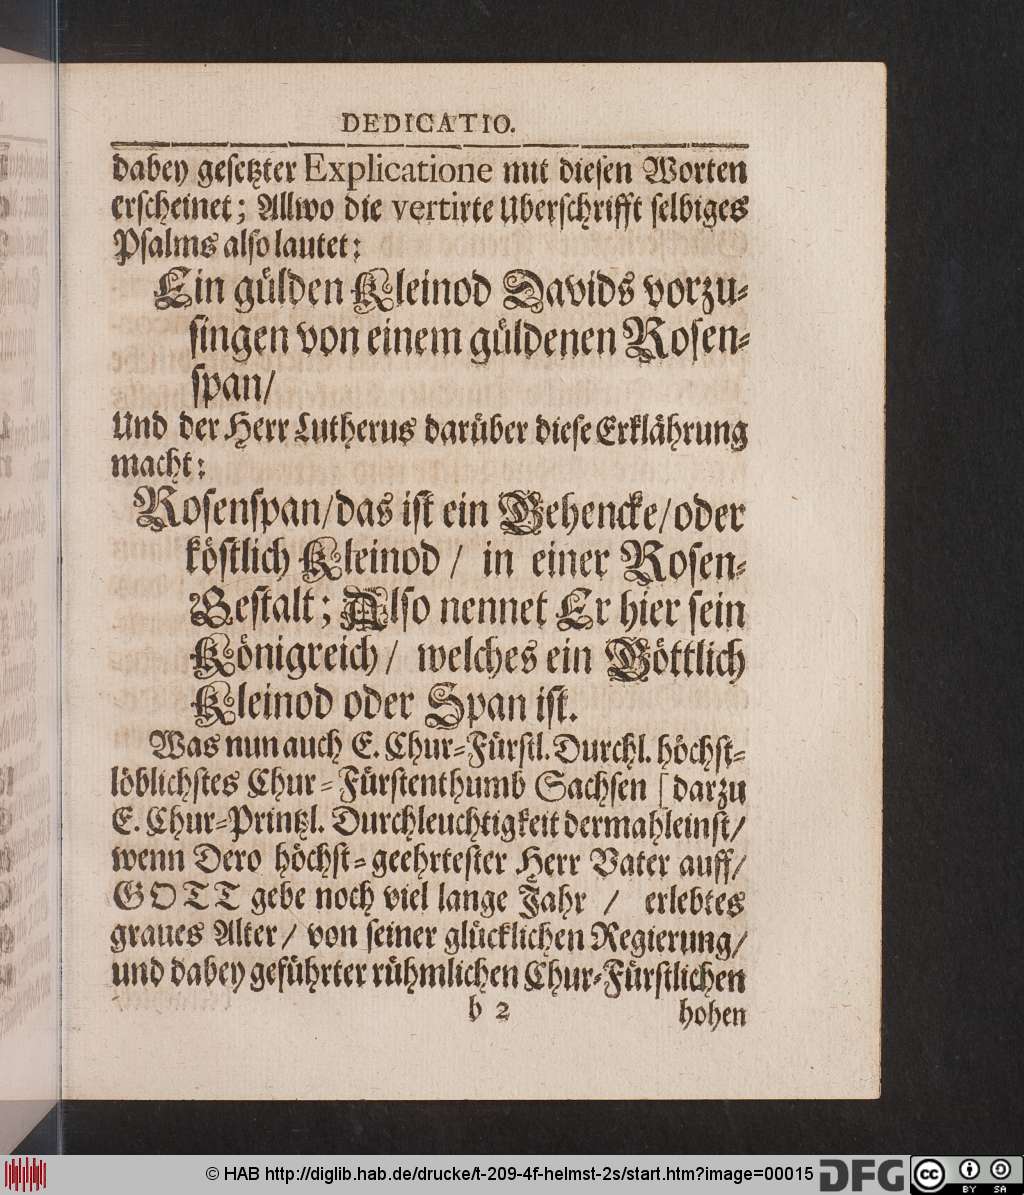 DEDICATIO.
dabey gesetzter Explicatione mit diesen Worten
erscheinet; Allwo die vertirte Uberschrifft selbiges
Psalms also lautet:
Ein gülden Kleinod Davids vorzu-
singen von einem güldenen Rosen-
span/
Und der Herr Lutherus darüber diese Erklährung
macht:
Rosenspan/das ist ein Gehencke/oder
köstlich Kleinod / in einer Rosen-
Gestalt; Also nennet Er hier sein
Königreich/ welches ein Göttlich
Kleinod oder Span ist.
Was nun auch E. Chur-Fürstl. Durchl. höchst-
löblichstes Chur-Fürstenthumb Sachsen [darzu
E. Chur-Printzl. Durchleuchtigkeit dermahleinst/
wenn Dero höchst-geehrtester Herr Vater auff/
GOTT gebe noch viel lange Jahr / erlebtes
graues Alter/ von seiner glücklichen Regierung/
und dabey geführter rühmlichen Chur-Fürstlichen
b 2 hohen
© HAB http://diglib.hab.de/drucke/t-209-4f-helmst-2s/start.htm?image=00015 DFG cc BY SA